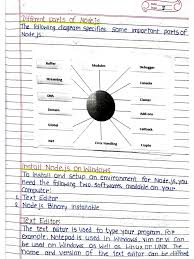 Different Parts of NodeJS
The following diagram specifies some important parts of
Node.js
Buffer
Modules
Debugger
Streaming
Console
DNS
Cluster
Domain
Add-ons
Global
Callbacks
Net
Crypto
Error Handling
Install Node.js on Windows
To Install and setup an environment for Node.js, you
need the following two softwares available on your
Computer:
1. Text Editor
2. Node.js Binary installable
Text Editor:
The text editor is used to type your program. For
example, Notepad is used in Windows, Vim or Vi can
be used on Windows as well as Linux or UNIX. The
name and version of the text editor can be different